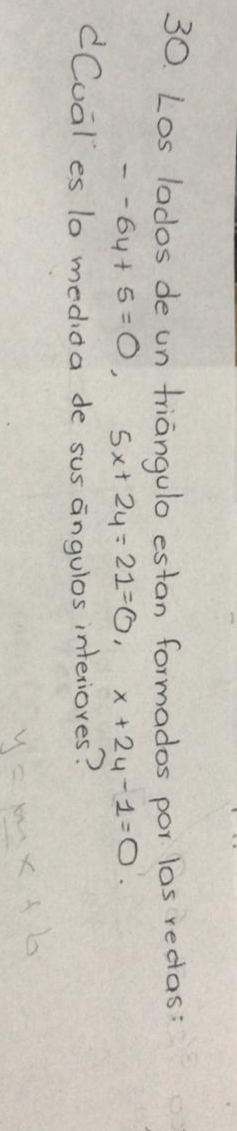 30. Los lados de un triángulo estan formados por las rectas:
- -6y + 5 = 0, 5x + 2y = 21 = 0, x + 2y - 1 = 0.
¿Cuál es la medida de sus ángulos interiores?
y = mx + b